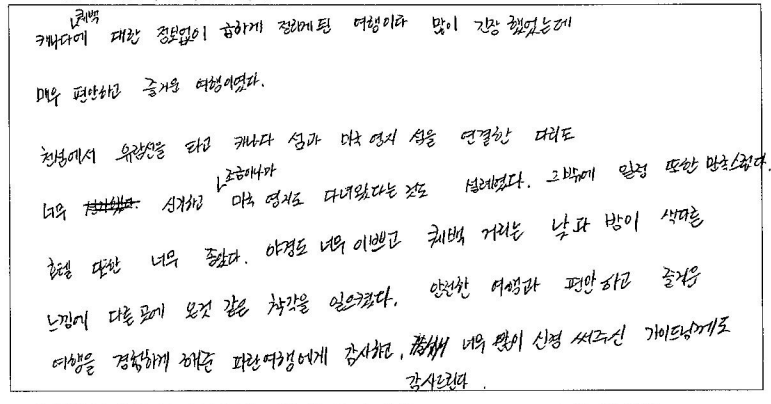 캐나다에 퀘백 대한 정보없이 급하게 결정하게된 여행이다 많이 긴장 했었는데
매우 편안하고 즐거운 여행이였다.
천섬에서 유람선을 타고 캐나다 섬과 미국 영지 섬을 연결한 다리도
너무 신기하고 조금이나마 미국 영지도 다녀왔다는것도 설레였다. 그밖에 일정 또한 만족스럽다.
호텔 또한 너무 좋았다. 야경도 너무 이쁘고 퀘백 거리는 낮과 밤이 색다른
느낌에 다른곳에 온것 같은 착각을 일으켰다. 안전한 여행과 편안하고 즐거운
여행을 경험하게 해준 파란여행에게 감사하고, 너무 많이 신경 써주신 가이드님께도
감사드린다.